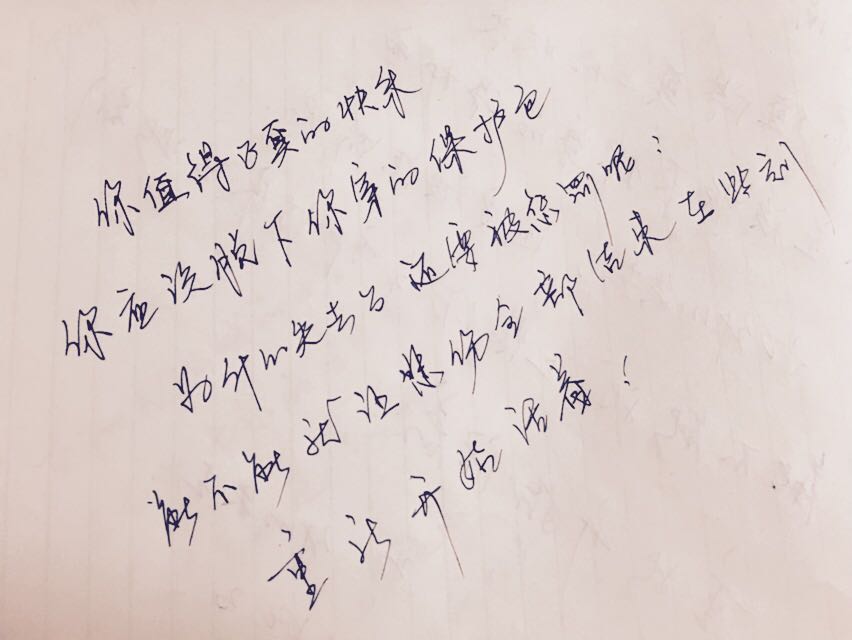 你值得了真的快乐
你应该脱下你穿的保护色
为什么失去了 还要被惩罚呢?
能不能就让悲伤全部结束在此刻
重新开始活着!